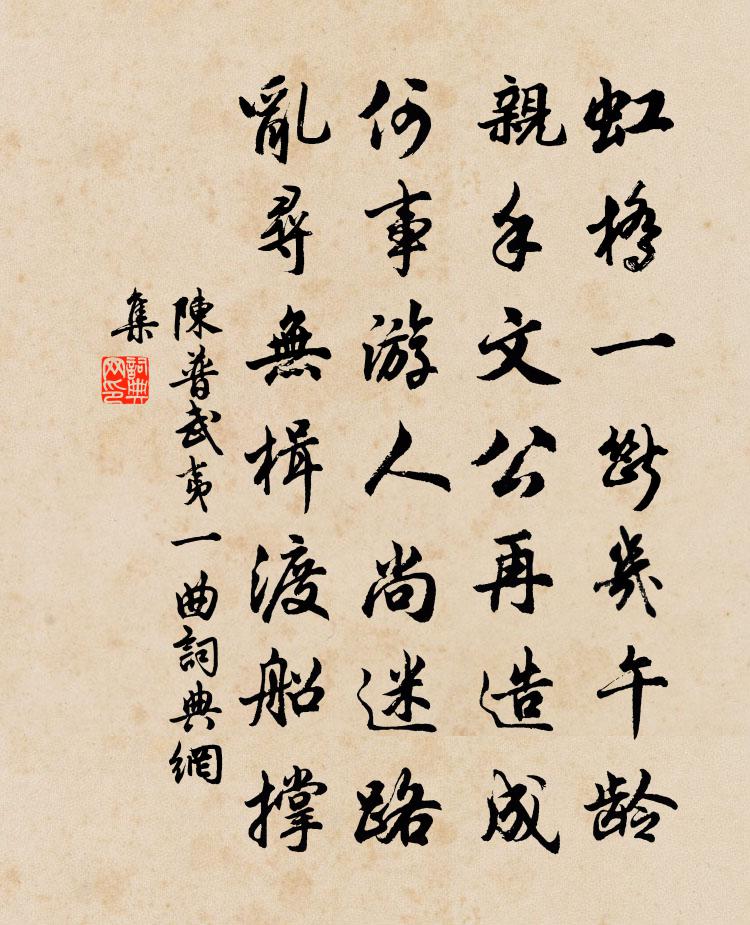 虹橋一斷幾午龄
親手文公再造成
何事游人尚迷路
亂尋無楫渡船撐
陳普武夷一曲詞典網
集
詞典
网印